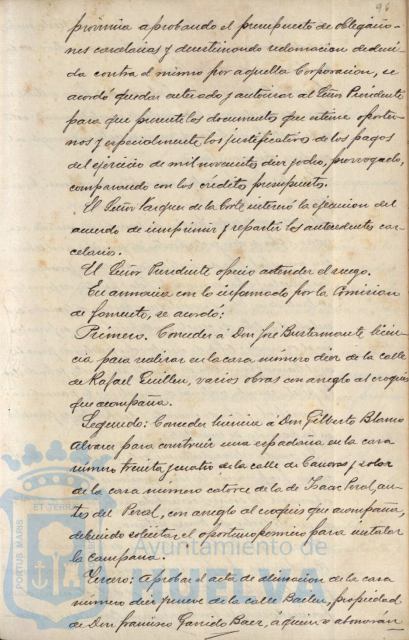 96
provincia aprobando el presupuesto de obligacio-
nes carcelarias y desestimando reclamacion deduci-
da contra el mismo por aquella Corporacion, se
acordó quedar enterado y autorizar al Señor Presidente
para que presente los documentos que estime oportu-
nos y especialmente los justificativos de los pagos
del ejercicio de mil novecientos diez y ocho, prorrogado,
comparando con los créditos presupuestos.
El Señor Vazquez de la Corte interesó la ejecucion del
acuerdo de imprimir y repartir los antecedentes car-
celarios.
El Señor Presidente ofreció atender el ruego.
En armonia con lo informado por la Comision
de fomento, se acordó:
Primero. Conceder á Don José Bustamante licen-
cia para realizar en la casa número diez de la calle
de Rafael Guillen, varios obras con arreglo al croquis
que acompaña.
Segundo: Conceder licencia á Don Gilberto Blanco
Alvarez para construir una espadaña en la casa
número treinta y cuatro de la calle de Canovas y solar
de la casa número catorce de la de Isaac Peral, an-
tes del Peral, con arreglo al croquis que acompaña,
debiendo solicitar el oportuno permiso para instalar
la campana.
Tercero: Aprobar el acta de alineacion de la casa
número diez y nueve de la calle Bailen, propiedad
de Don Francisco Garrido Baez, á quien se abonarán
PORTUS MARIS
ET TERRAE
Ayuntamiento de
HUELVA